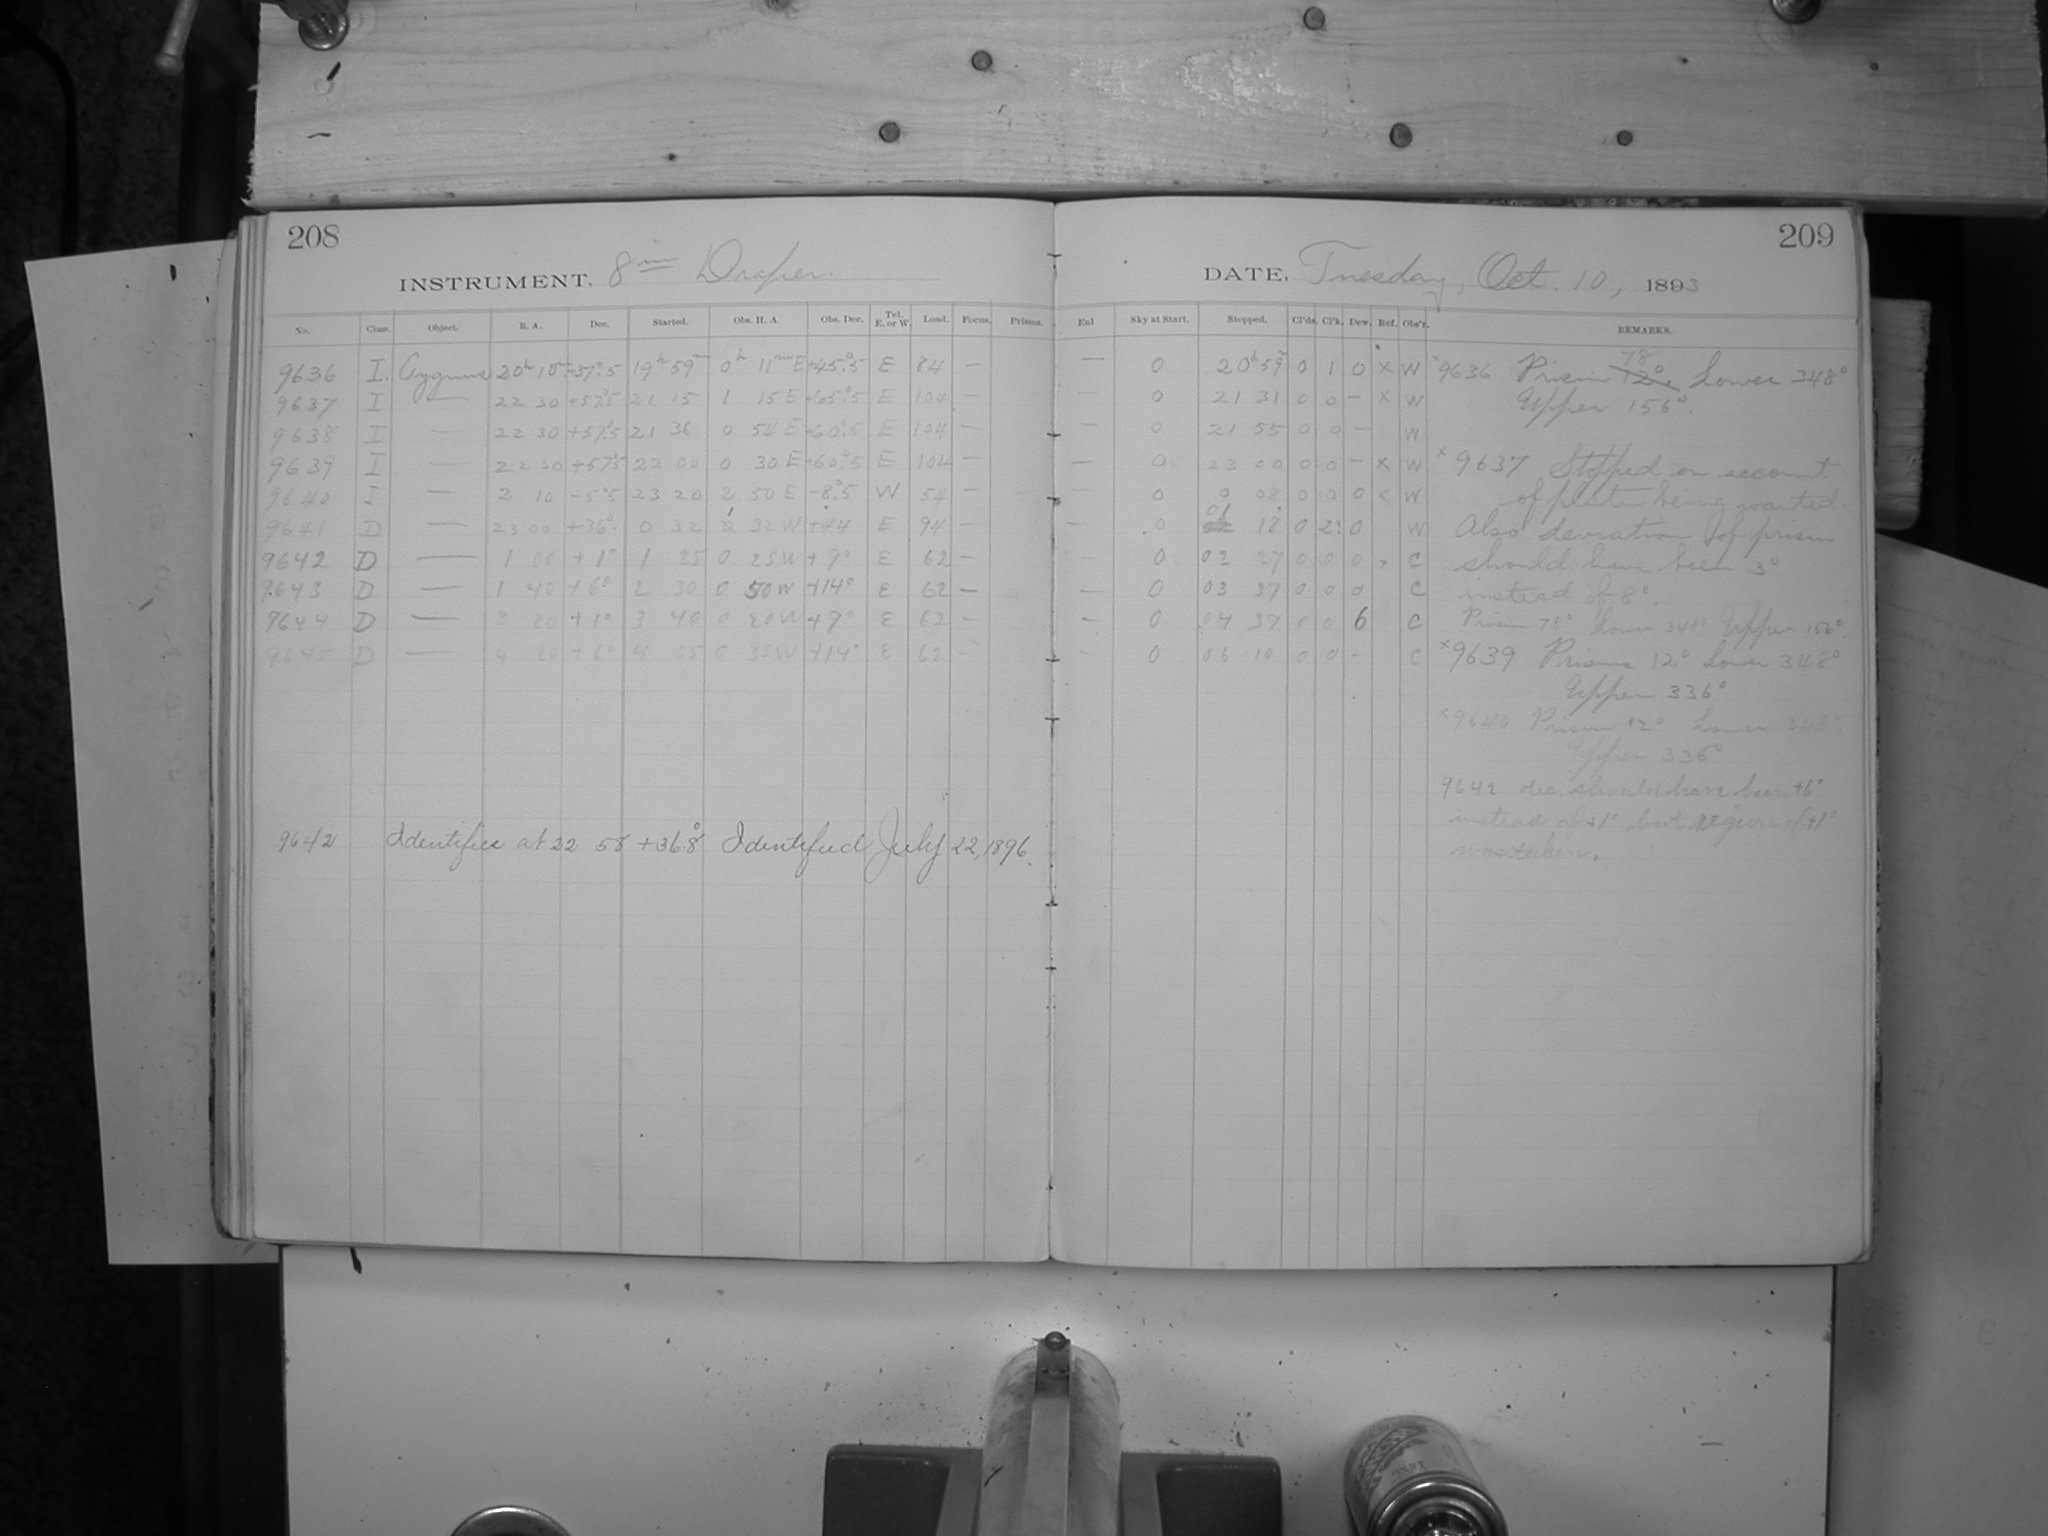 208
INSTRUMENT. 8 in Draper.
No. Class. Object. R. A. Dec. Started. Obs. H. A. Obs. Dec. Tel. E. or W. Load. Focus. Prisms.
9636 I. Cygnus 20h 15m +37°.5 19h 59m 0h 11m E +45°.5 E 84 —
9637 I — 22 30 +57°.5 21 15 1 15 E +65°.5 E 104 —
9638 I — 22 30 +57°.5 21 36 0 54 E +60°.5 E 104 —
9639 I — 22 30 +57°.5 22 00 0 30 E +60°.5 E 104 —
9640 I — 2 10 -5°.5 23 20 2 50 E -8°.5 W 54 —
9641 D — 23 00 +36° 0 32 1 32 W +44 E 94 —
9642 D — 1 00 +1° 1 25 0 25 W +9° E 62 —
9643 D — 1 40 +6° 2 30 0 50 W +14° E 62 —
9644 D — 3 20 +1° 3 40 0 20 W +9° E 62 —
9645 D — 4 20 +6° 4 55 0 35 W +14° E 62 —
9642 Identifies at 22 58 +36°.8 Identified July 22, 1896.
209
DATE, Tuesday, Oct. 10, 1893
Enl Sky at Start. Stopped. Cl'ds. Cl'k. Dew. Ref. Obs'r. REMARKS.
— 0 20h 59m 0 1 0 x W
— 0 21 31 0 0 — x W
— 0 21 55 0 0 — W
— 0 23 00 0 0 — x W
— 0 0 08 0 0 0 x W
— 0 01 18 0 2? 0 W
— 0 02 27 0 0 0 x C
— 0 03 37 0 0 0 C
— 0 04 37 0 0 6 C
— 0 06 10 0 0 — C
x9636 Prism 12° 78 Lower 348°
Upper 156°.
x9637 Stopped on account
of plate being wanted.
Also deviation of prism
should have been 3°
instead of 8°.
Prism 78° Lower 348° Upper 156°.
x9639 Prisms 12° Lower 348°
Upper 336°
x9640 Prism 12° Lower 348°
Upper 336°
9642 dec. should have been +6°
instead of +1° but region of +1°
was taken.